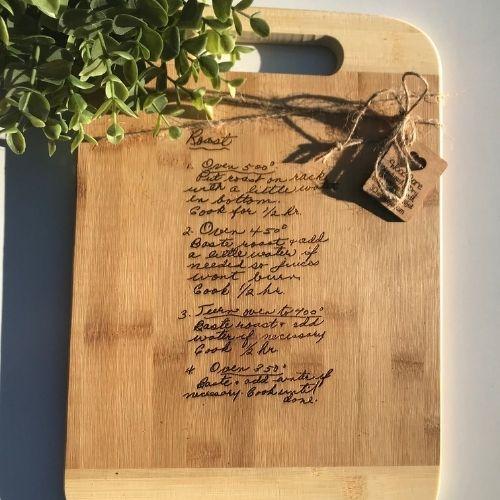 Roast
1. Oven 500°
Put roast on rack
with a little water
in bottom.
Cook for 1/2 hr.
2. Oven 450°
Baste roast + add
a little water if
needed so juices
wont burn
Cook 1/2 hr
3. Turn oven to 400°
Baste roast + add
water if necessary
Cook 1/2 hr.
4. Oven 350°
Baste + add water if
necessary. Cook until
done.